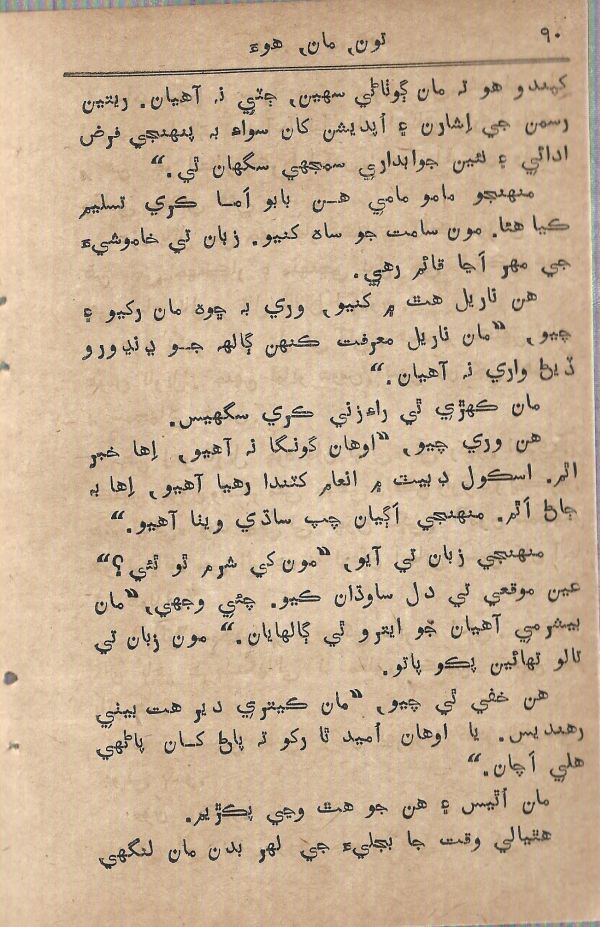 ٩٠
تون، مان، هوءَ
کهندو هو ته مان ڳوٺاڻي سهين، جٽي نه آهيان. ريتين
رسمن جي اِشارن ۽ اُپديشن کان سواءِ به پنهنجي فرض
ادائي ۽ نئين جوابداري سمجهي سگهان ٿي.“
منهنجو مامو مامي هن بابو اَما ڪري تسليم
ڪيا هئا. مون سامت جو ساهه کنيو. زبان تي خاموشيءَ
جي مهر اَڃا قائم رهي.
هن ناريل هٿ ۾ کنيو، وري به ڇوهه مان رکيو ۽
چيو، ”مان ناريل معرفت ڪنهن ڳالهه جو ڍنڍورو
ڏيڻ واري نه آهيان.“
مان ڪهڙي ٿي راءِزني ڪري سگهيس.
هن وري چيو، ”اوهان گونگا نه آهيو، اِها خبر
اٿم. اسڪول ڊبيٽ ۾ انعام کٽندا رهيا آهيو، اِها به
ڄاڻ اَٿم. منهنجي اَڳيان چپ ساڌي ويٺا آهيو.“
منهنجي زبان تي آيو، ”مون کي شرم ٿو ٿئي؟“
عين موقعي تي دل ساوڌان ڪيو. چئي وجهي، ”مان
بيشرمي آهيان جو ايترو ٿي ڳالهايان.“ مون زبان تي
تالو تهائين پڪو پاتو.
هن خفي ٿي چيو، ”مان ڪيتري دير هت بيٺي
رهنديس. يا اوهان اُميد ٿا رکو ته پاڻ کان پاڻهي
هلي اَچان.“
مان اُٿيس ۽ هن جو هٿ وڃي پڪڙيم.
هٿيالي وقت جا بجليءَ جي لهر بدن مان لنگهي